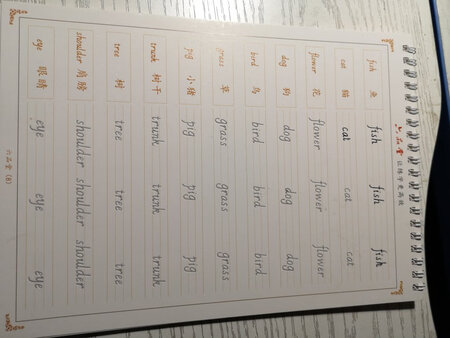 六品堂 让练字更高效
fish 鱼 fish fish fish
cat 猫 cat cat cat
flower 花 flower flower flower
dog 狗 dog dog dog
bird 鸟 bird bird bird
grass 草 grass grass grass
pig 小猪 pig pig pig
trunk 树干 trunk trunk trunk
tree 树 tree tree tree
shoulder 肩膀 shoulder shoulder shoulder
eye 眼睛 eye eye eye
六品堂 (8)